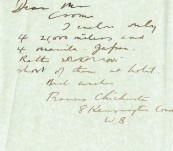 Dear Mr
Croome
I enclose only
4 2/000 milers and
4 Manila - Japan.
Rather
short of them at hotel.
Best wishes
Francis Chichester
8 Kensington
W.8